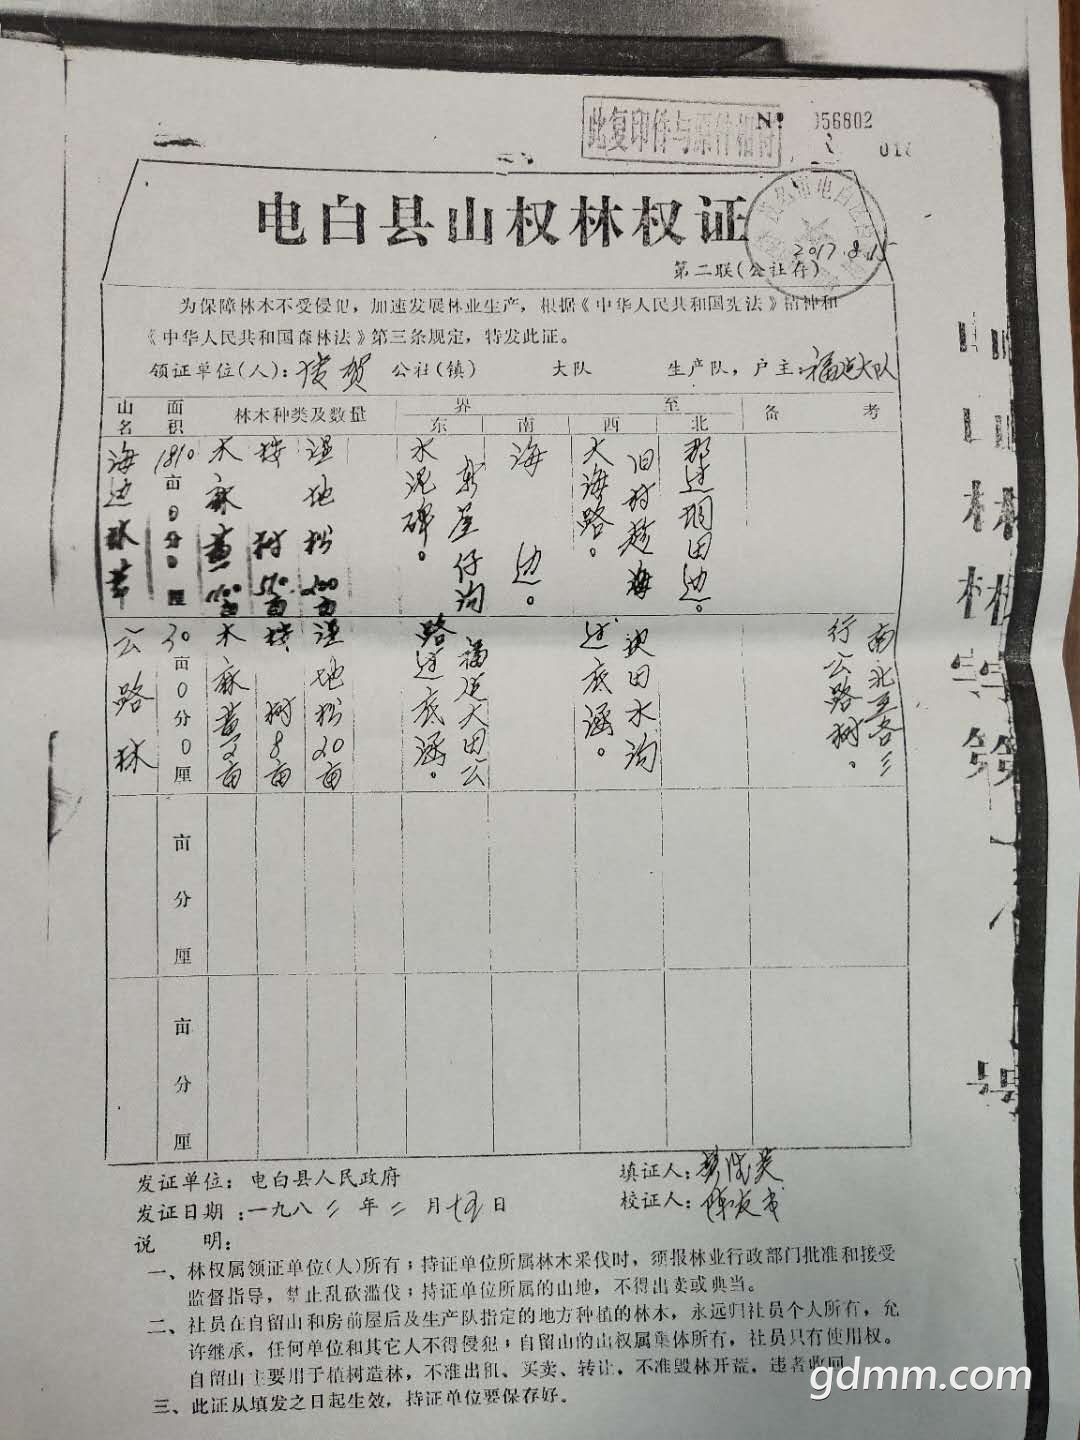 此复印件与原件相符
№ 056802
电白县山权林权证
2017.8.15
第二联(公社存)
为保障林木不受侵犯，加速发展林业生产，根据《中华人民共和国宪法》精神和
《中华人民共和国森林法》第三条规定，特发此证。
领证单位(人)： 公社(镇) 大队 生产队，户主：福达大队
山名 面积 林木种类及数量 界至 备考
东 南 西 北
海边林带
1810亩0分0厘
木麻黄
桉树
湿地松200亩
水泥碑。
新屋仔沟
海边。
旧村趁海
大海路。
那过垌田边。
公路林
30亩0分0厘
木麻黄2亩
桉树8亩
湿地松20亩
福达大田公
路过底涵。
边田水沟
过底涵。
南北至各三
行公路树。
亩分厘
亩分厘
发证单位：电白县人民政府
填证人：
发证日期：一九八二年二月十五日
校证人：陈友
说明：
一、林权属领证单位(人)所有；持证单位所属林木采伐时，须报林业行政部门批准和接受
监督指导，禁止乱砍滥伐；持证单位所属的山地，不得出卖或典当。
二、社员在自留山和房前屋后及生产队指定的地方种植的林木，永远归社员个人所有，允
许继承，任何单位和其它人不得侵犯；自留山的山权属集体所有，社员只有使用权。
自留山主要用于植树造林，不准出租、买卖、转让，不准毁林开荒，违者收回。
三、此证从填发之日起生效，持证单位要保存好。
gdmm.com